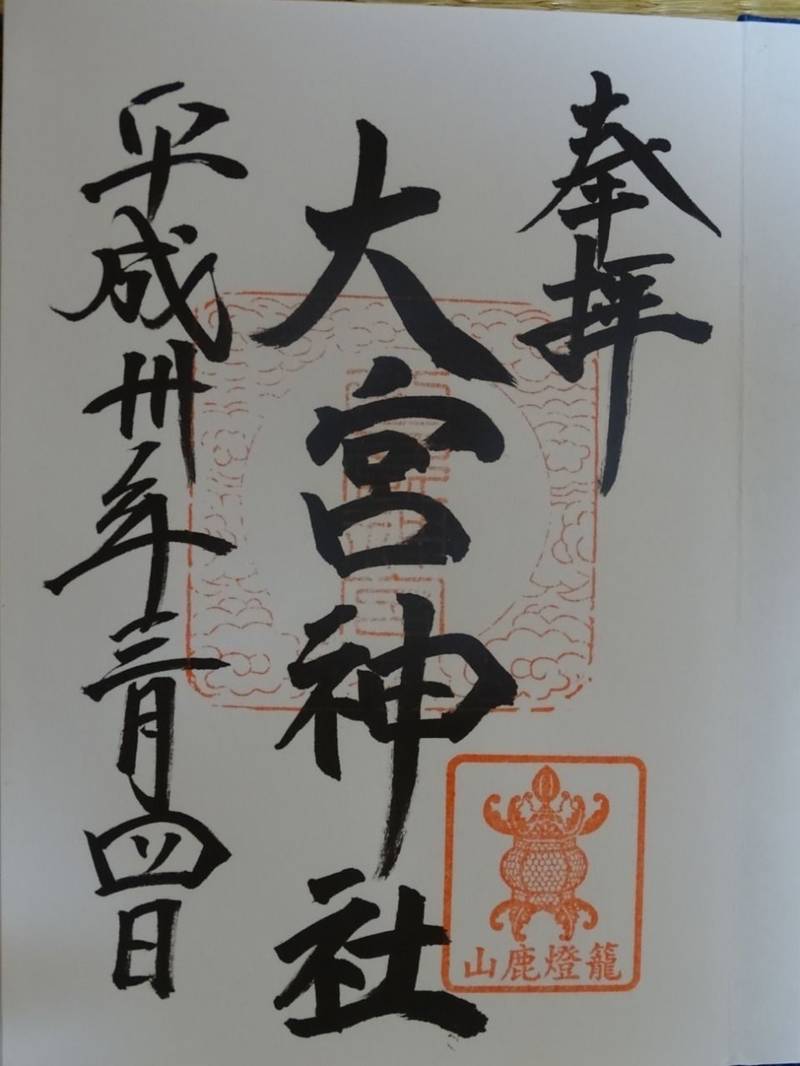 奉拝
大宮神社
平成卅年三月四日
山鹿燈籠